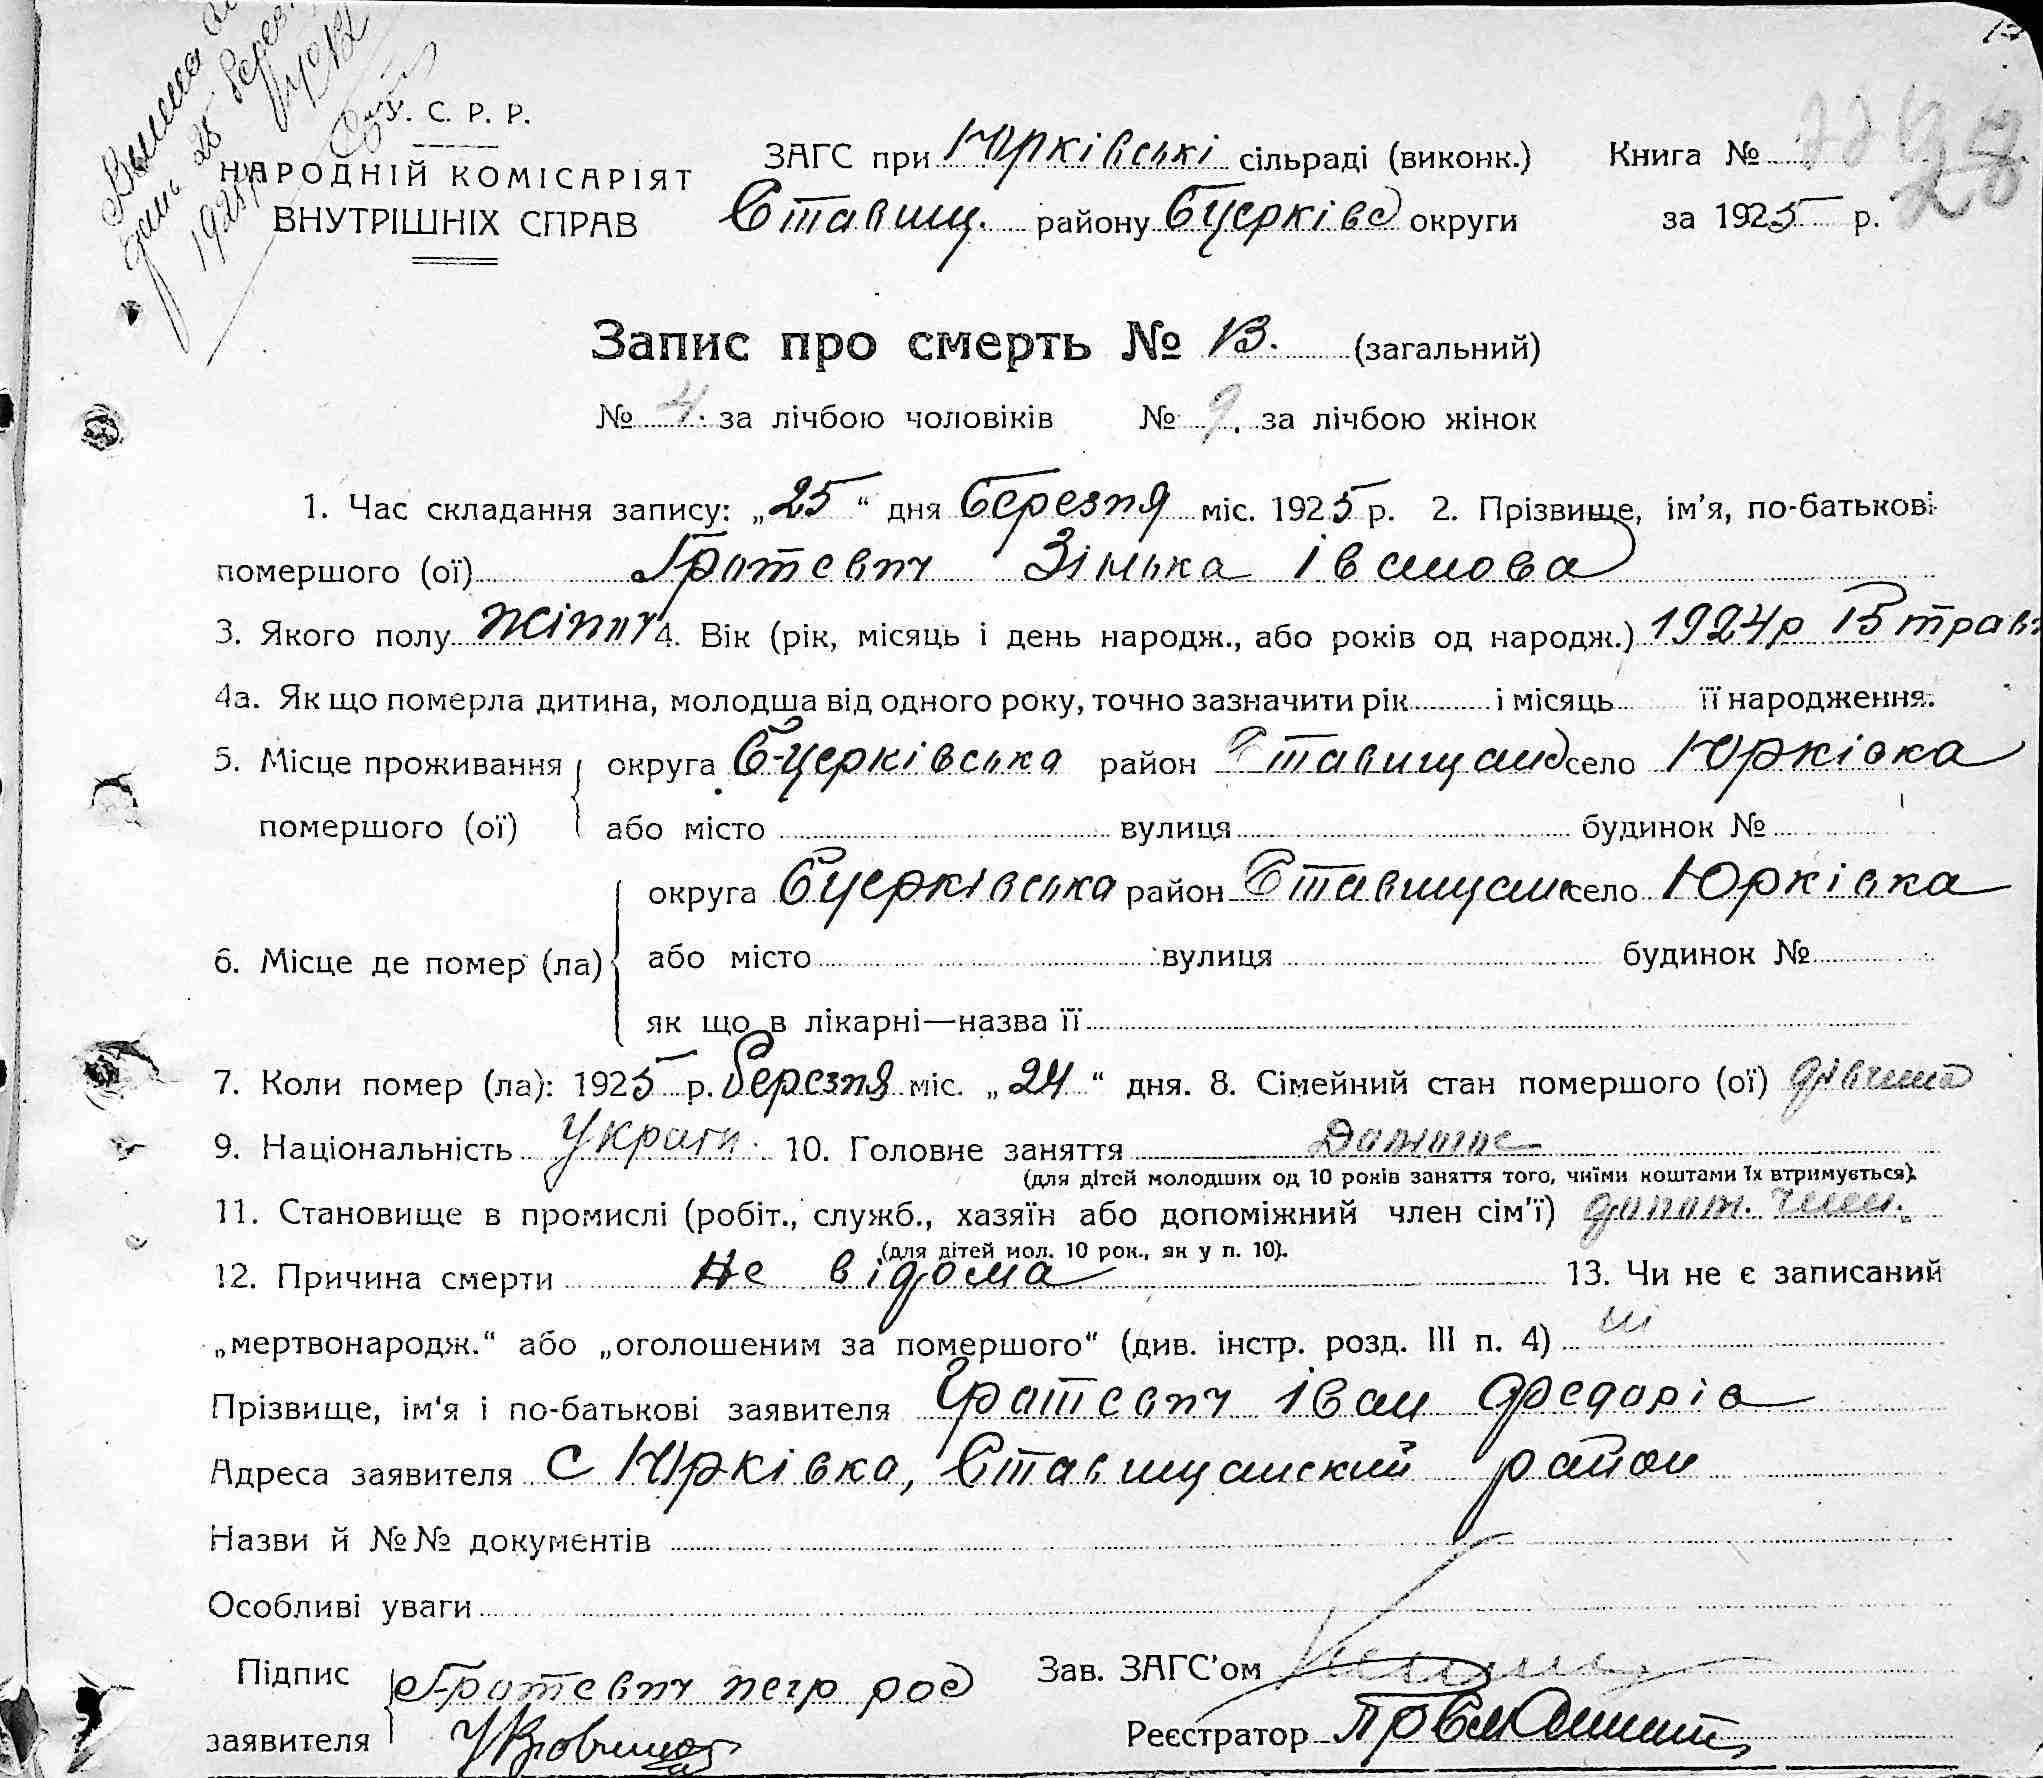 У. С. Р. Р.
НАРОДНІЙ КОМІСАРІЯТ
ВНУТРІШНІХ СПРАВ
ЗАГС при Юрківські сільраді (виконк.)
Ставищ. району Бцерківс округи
Книга №
за 1925 р.
28
Запис про смерть № 13. (загальний)
№ 4. за лічбою чоловіків № 9. за лічбою жінок
1. Час складання запису: „25“ дня Березня міс. 1925 р. 2. Прізвище, ім'я, по-батькові
помершого (ої) Гратевич Зінька Іванова
3. Якого полу жіноч 4. Вік (рік, місяць і день народж., або років од народж.) 1924 р 15 трав
4а. Як що померла дитина, молодша від одного року, точно зазначити рік і місяць її народження.
5. Місце проживання округа Б-церківська район Ставищанс село Юрківка
помершого (ої) або місто вулиця будинок №
округа Бцерківська район Ставищан село Юрківка
6. Місце де помер (ла) або місто вулиця будинок №
як що в лікарні—назва її
7. Коли помер (ла): 1925 р. Березня міс. „24“ дня. 8. Сімейний стан помершого (ої) дівчина
9. Національність Україн. 10. Головне заняття
(для дітей молодших од 10 років заняття того, чиїми коштами їх втримується).
11. Становище в промислі (робіт., служб., хазяїн або допоміжний член сім'ї) допом. член.
(для дітей мол. 10 рок., як у п. 10).
12. Причина смерти Не відома 13. Чи не є записаний
„мертвонародж.“ або „оголошеним за помершого“ (див. інстр. розд. III п. 4) ні
Прізвище, ім'я і по-батькові заявителя Гратевич Іван Федорів
Адреса заявителя С Юрківка, Ставищанский район
Назви й №№ документів
Особливі уваги
Підпис Гратевич негр роз
заявителя
Зав. ЗАГС'ом
Реєстратор